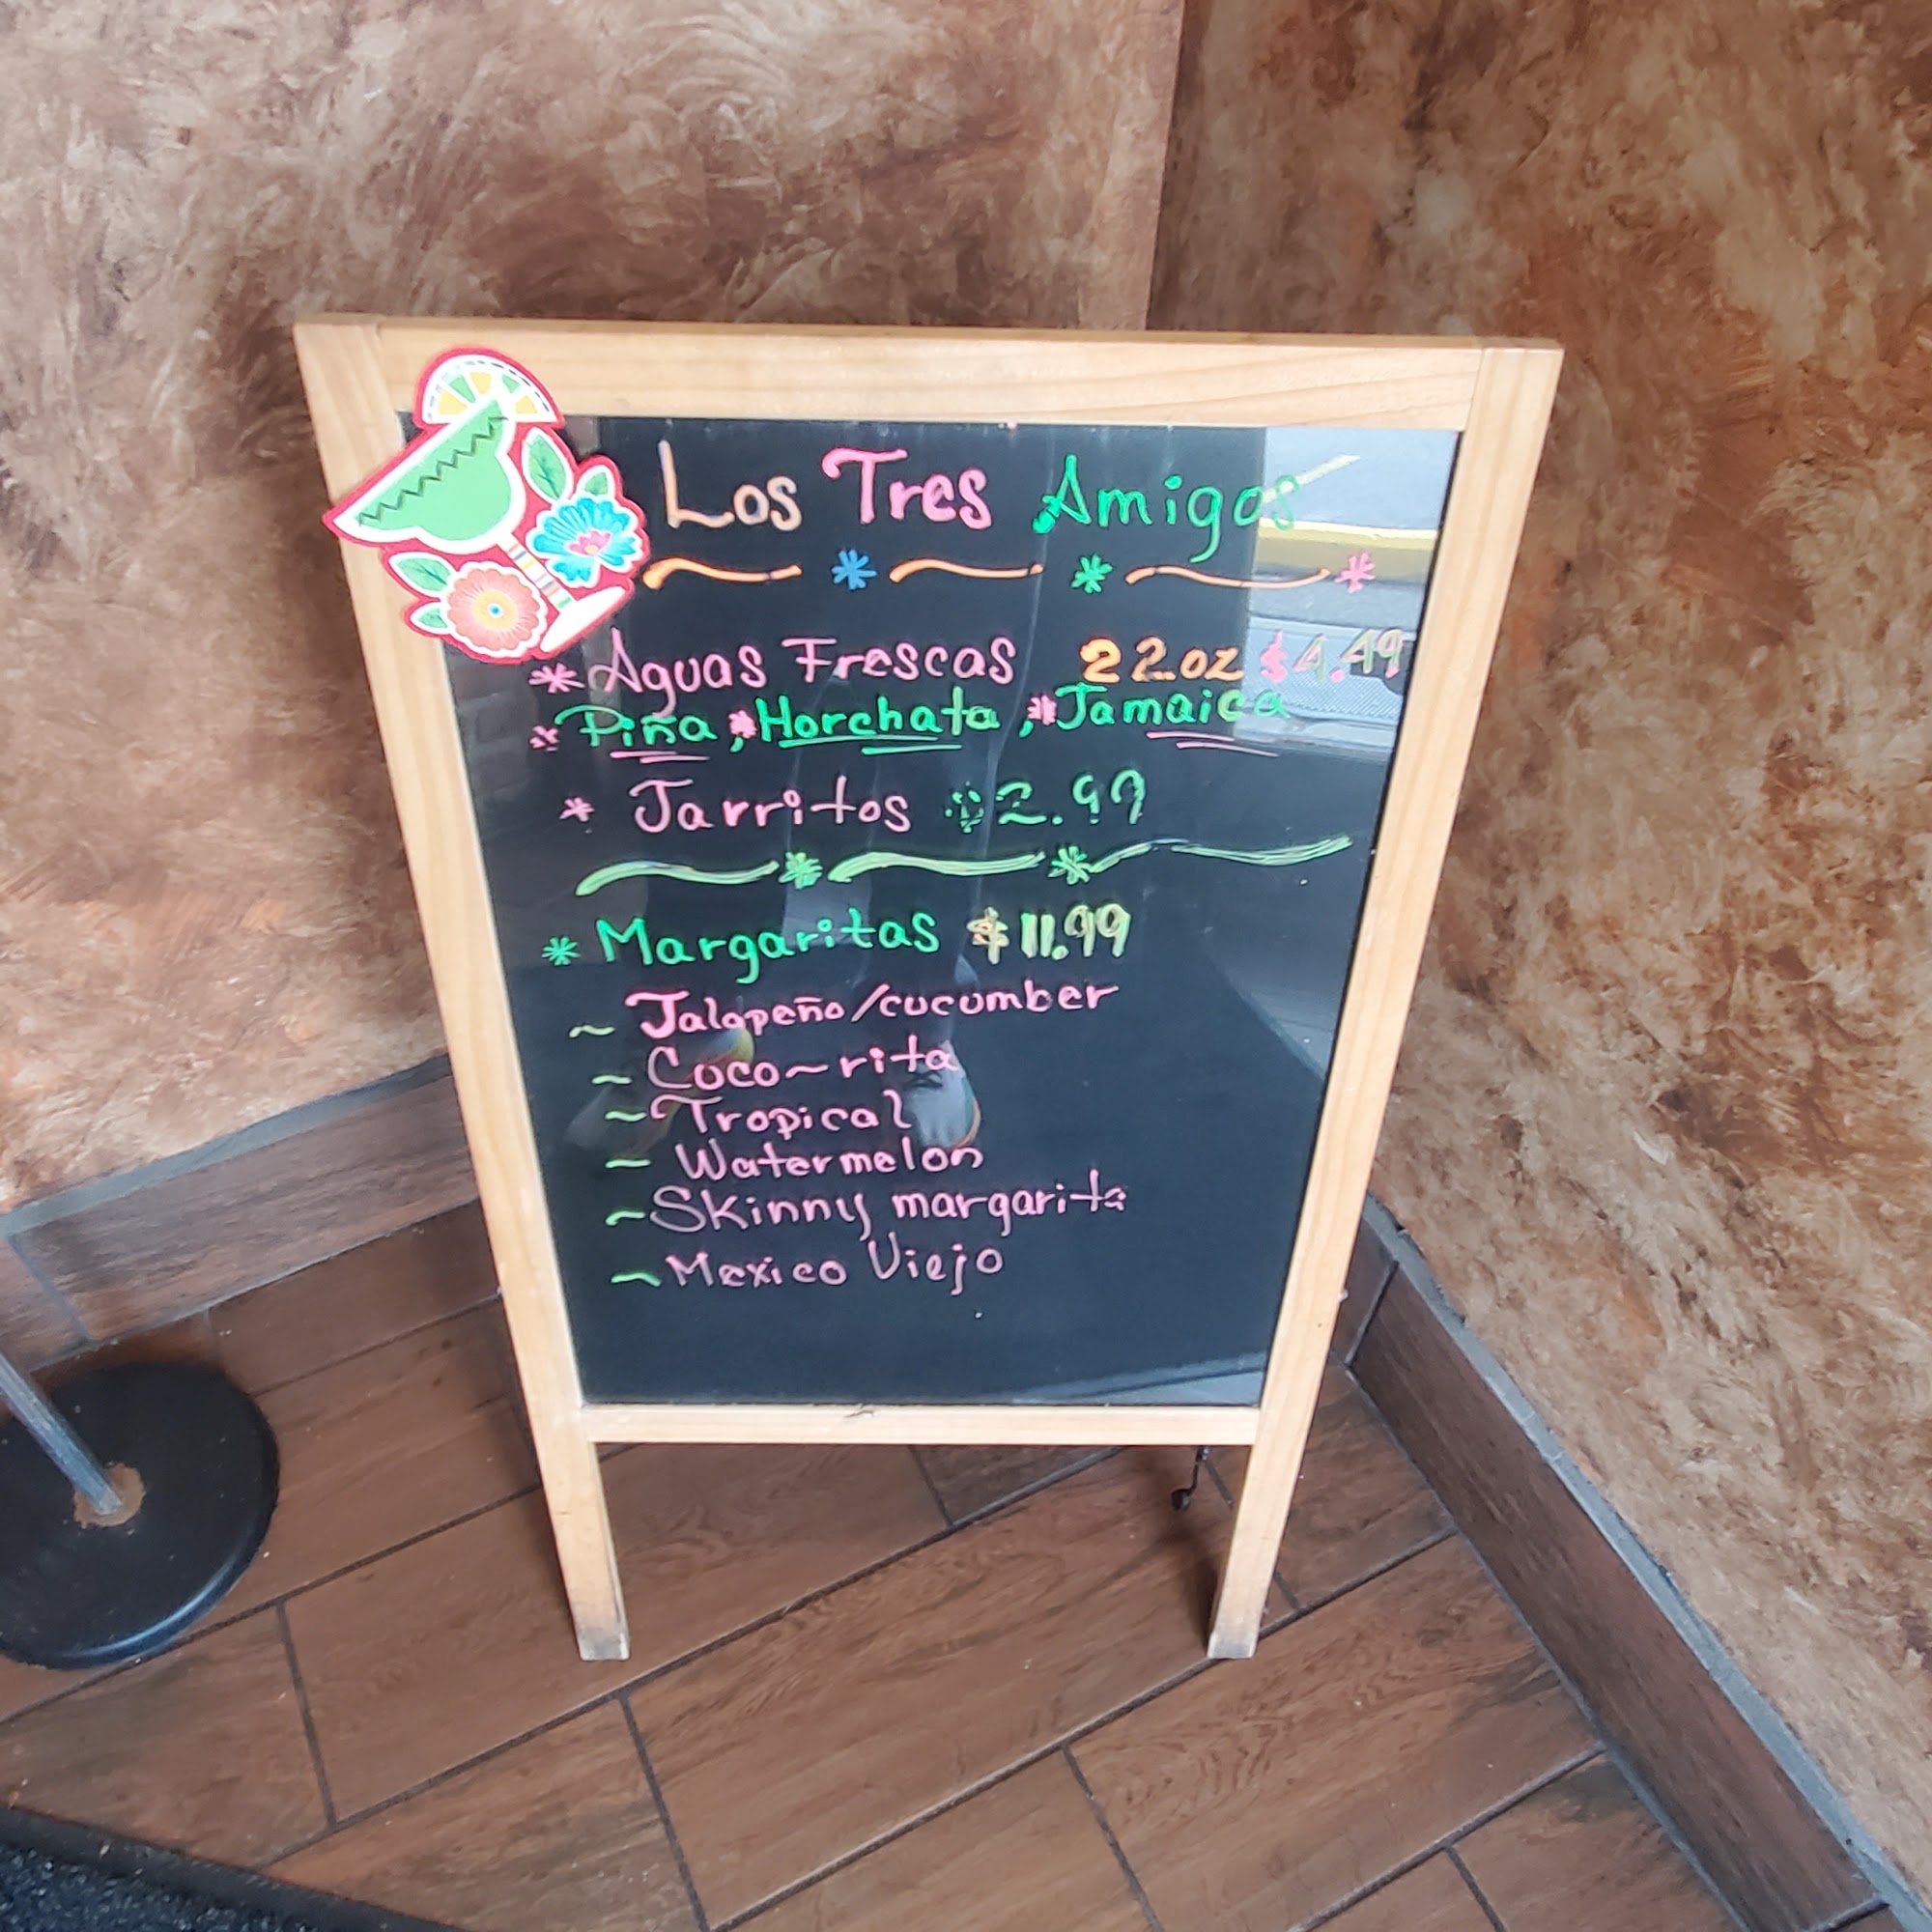 Los Tres Amigos
* Aguas Frescas 22.oz $4.49
* Piña, * Horchata, * Jamaica
* Jarritos $2.99
* Margaritas $11.99
~ Jalapeño/cucumber
~ Coco~rita
~ Tropical
~ Watermelon
~ Skinny margarita
~ Mexico Viejo